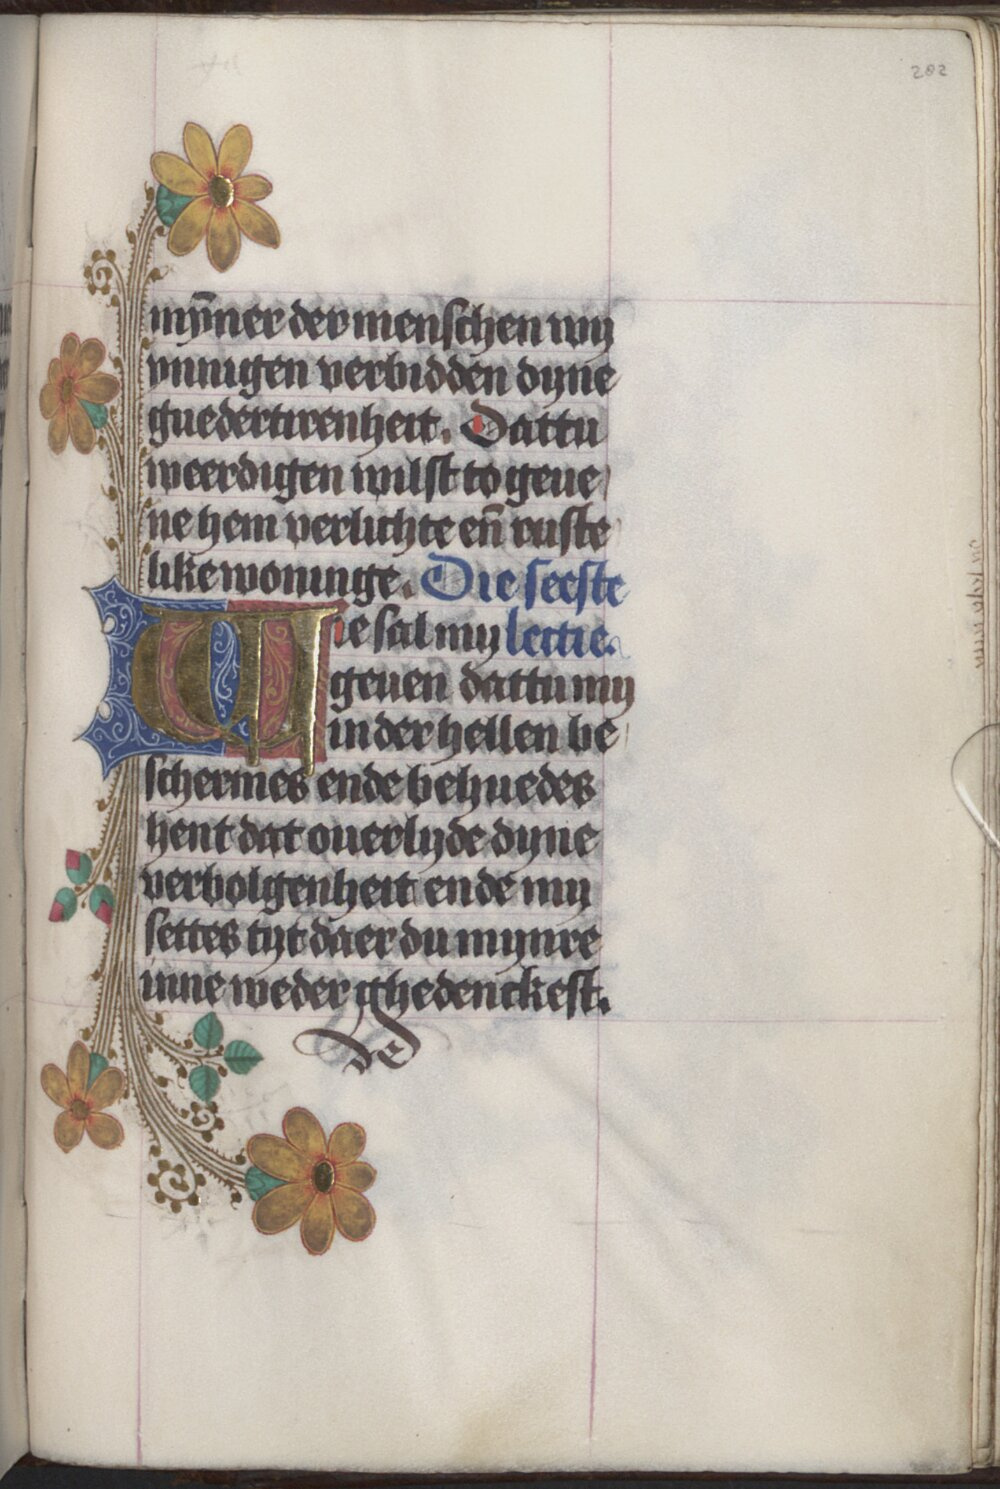 202
mȳner der menschen wy
ynnigen verbidden dyne
guedertirenheit. Dattu
weerdigen wilst to geue
ne hem verlichte en̄ ruste
like woninge. Die seeste
Wie sal my lectie.
geuen dattu my
in der hellen be
schermes ende behuedes
hent dat ouerlyde dyne
verbolgenheit ende my
settes tyt daer du mynre
inne weder ghedenckest.